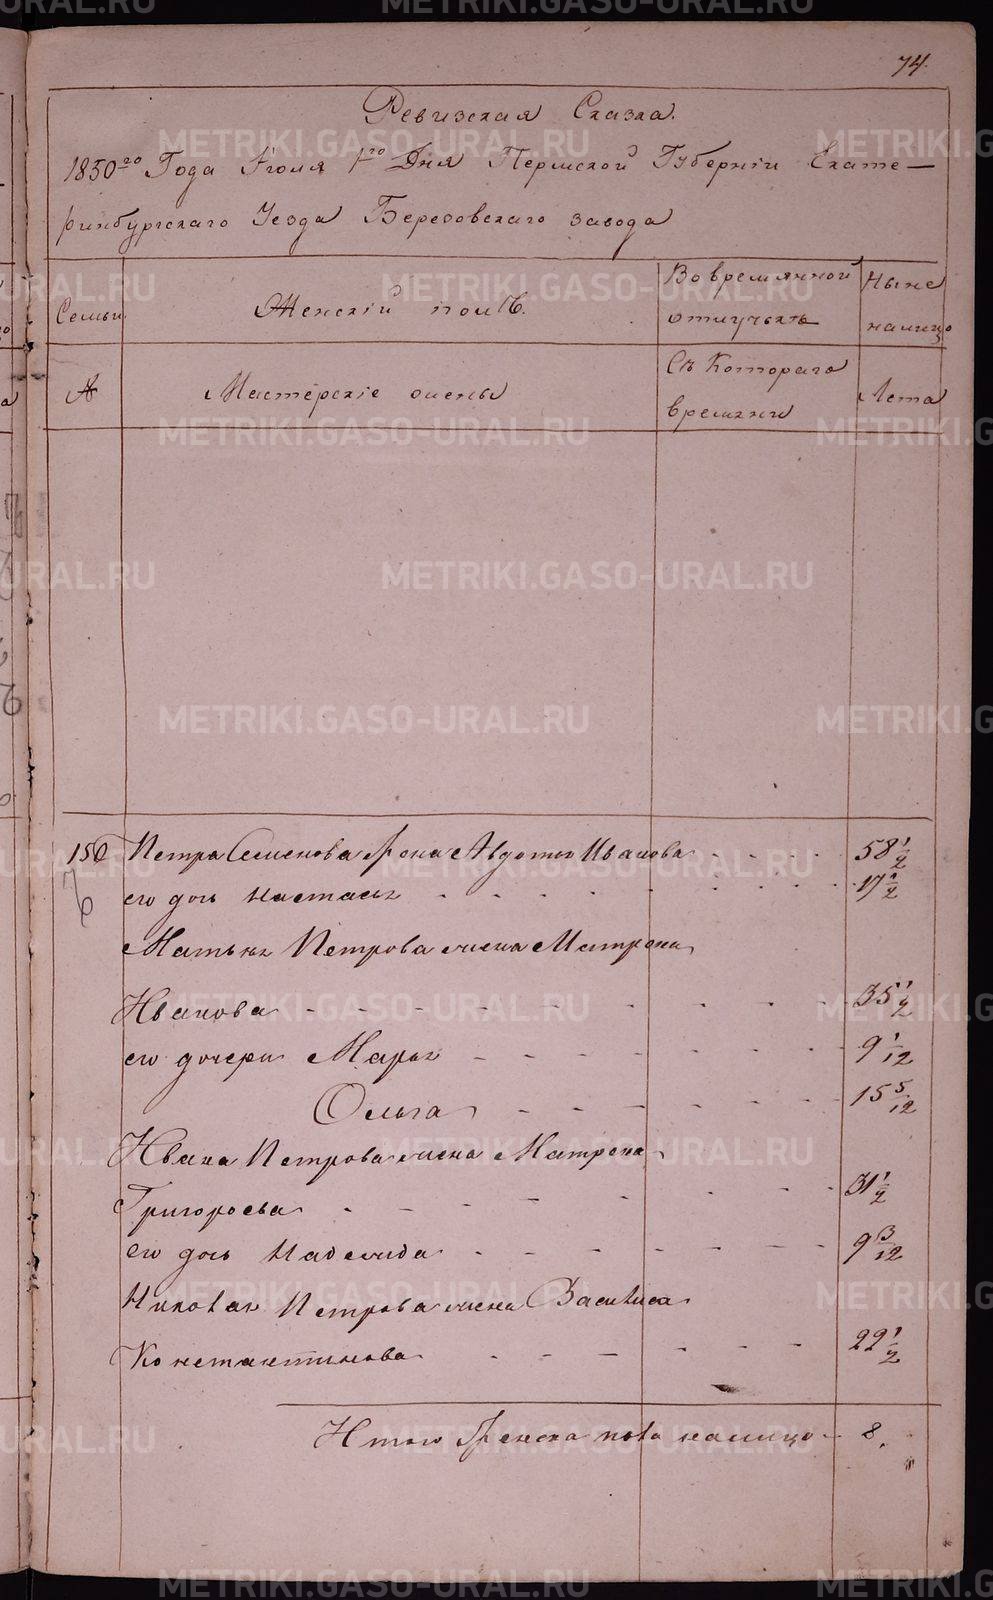 74.
Ревизская Сказка.
1850го Года Июля 1го Дня Пермской Губерніи Екате-
ринбургскаго Уезда Березовскаго завода
Семьи
Женскій полъ.
Во временной
отлучьке
Ныне
налицо
№
Мастерскіе жены
Съ Котораго
времени
Лета
150
Петра Семенова Жена Авдотья Иванова 58 1/2
6
его дочь Настасья 17 1/2
Матвея Петрова жена Матрена
Иванова 35 1/2
его дочери Марья 9 1/12
Ольга 15 5/12
Ивана Петрова жена Матрена
Григорьева 31 1/2
его дочь Надежда 9 3/12
Николая Петрова жена Василиса
Константинова 22 1/2
Итого Женска пола налицо 8.
METRIKI.GASO-URAL.RU